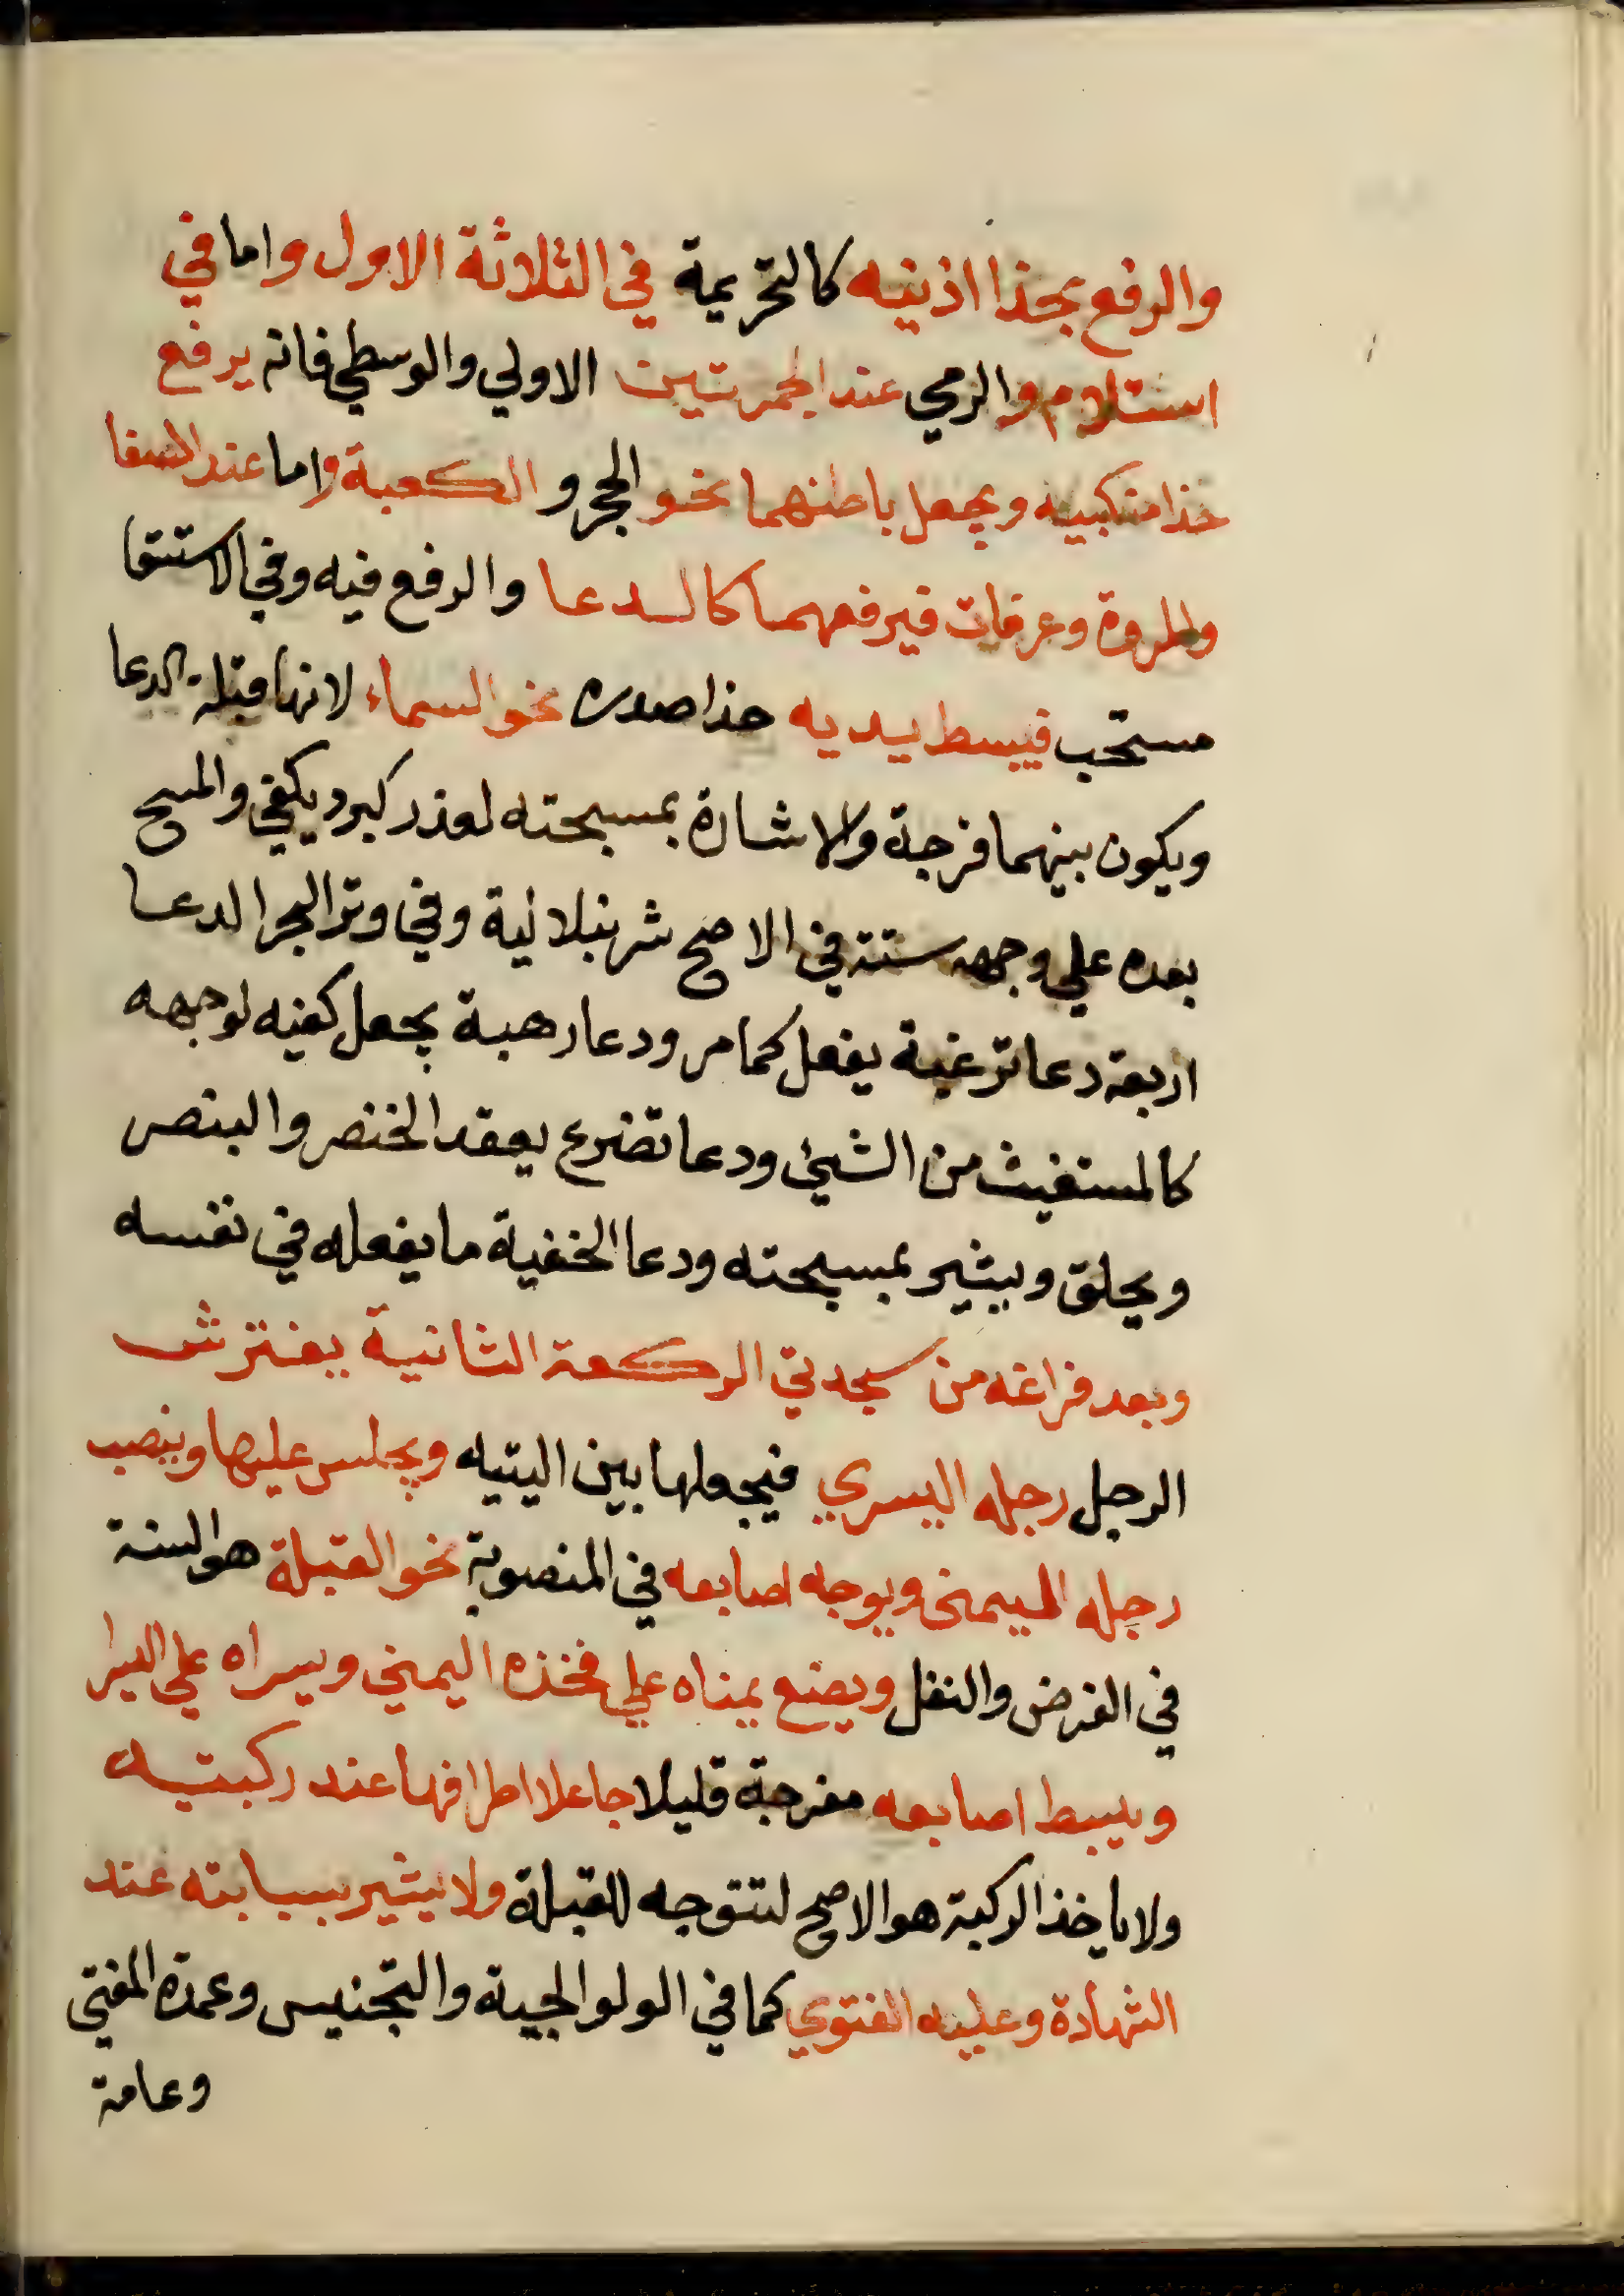 والرفع بحذا اذنيه كالتحريمة في الثلاثة الاول واما في
استلام والرمي عند الجمرتين الاولي والوسطي فانه يرفع
حذا منكبيه ويجعل باطنهما نحو الحجر و الكعبة واما عند الصفا
والمروة وعرفات فيرفعهما كالدعا والرفع فيه وفي الاستسقا
مستحب فيبسط يديه حذا صدره نحو السماء لانها قبلة الدعا
ويكون بينهما فرجة والاشارة بمسبحته لعذر كبرد يكفي والمسح
بعده علي وجهه سنته في الاصح شرنبلانية وفي وتر البحر الدعا
اربعة دعا ترغبة يفعل كما مر ودعا رهبة يجعل كفيه لوجهه
كالمستغيث من الشيئ ودعا تضرع يعقد الخنصر والبنصر
ويحلق ويشير بمسبحته ودعا الخفية ما يفعله في نفسه
وبعد فراغه من سجدتي الركعة الثانية يفترش
الرجل رجله اليسري فيجعلها بين اليتيه ويجلس عليها وينصب
رجله اليمنى ويوجه اصابعه في المنصوبة نحو القبلة هو السنة
في الفرض والنفل ويضع يمناه علي فخذه اليمني ويسراه علي اليسرا
ويبسط اصابعه مفرجة قليلا جاعلا اطرافها عند ركبتيه
ولا ياخذ الركبة هو الاصح لتتوجه للقبلة ولا يشير بسبابته عند
الشهادة وعليه الفتوي كما في الولوالجية والتجنيس وعمدة المفتي
وعامة